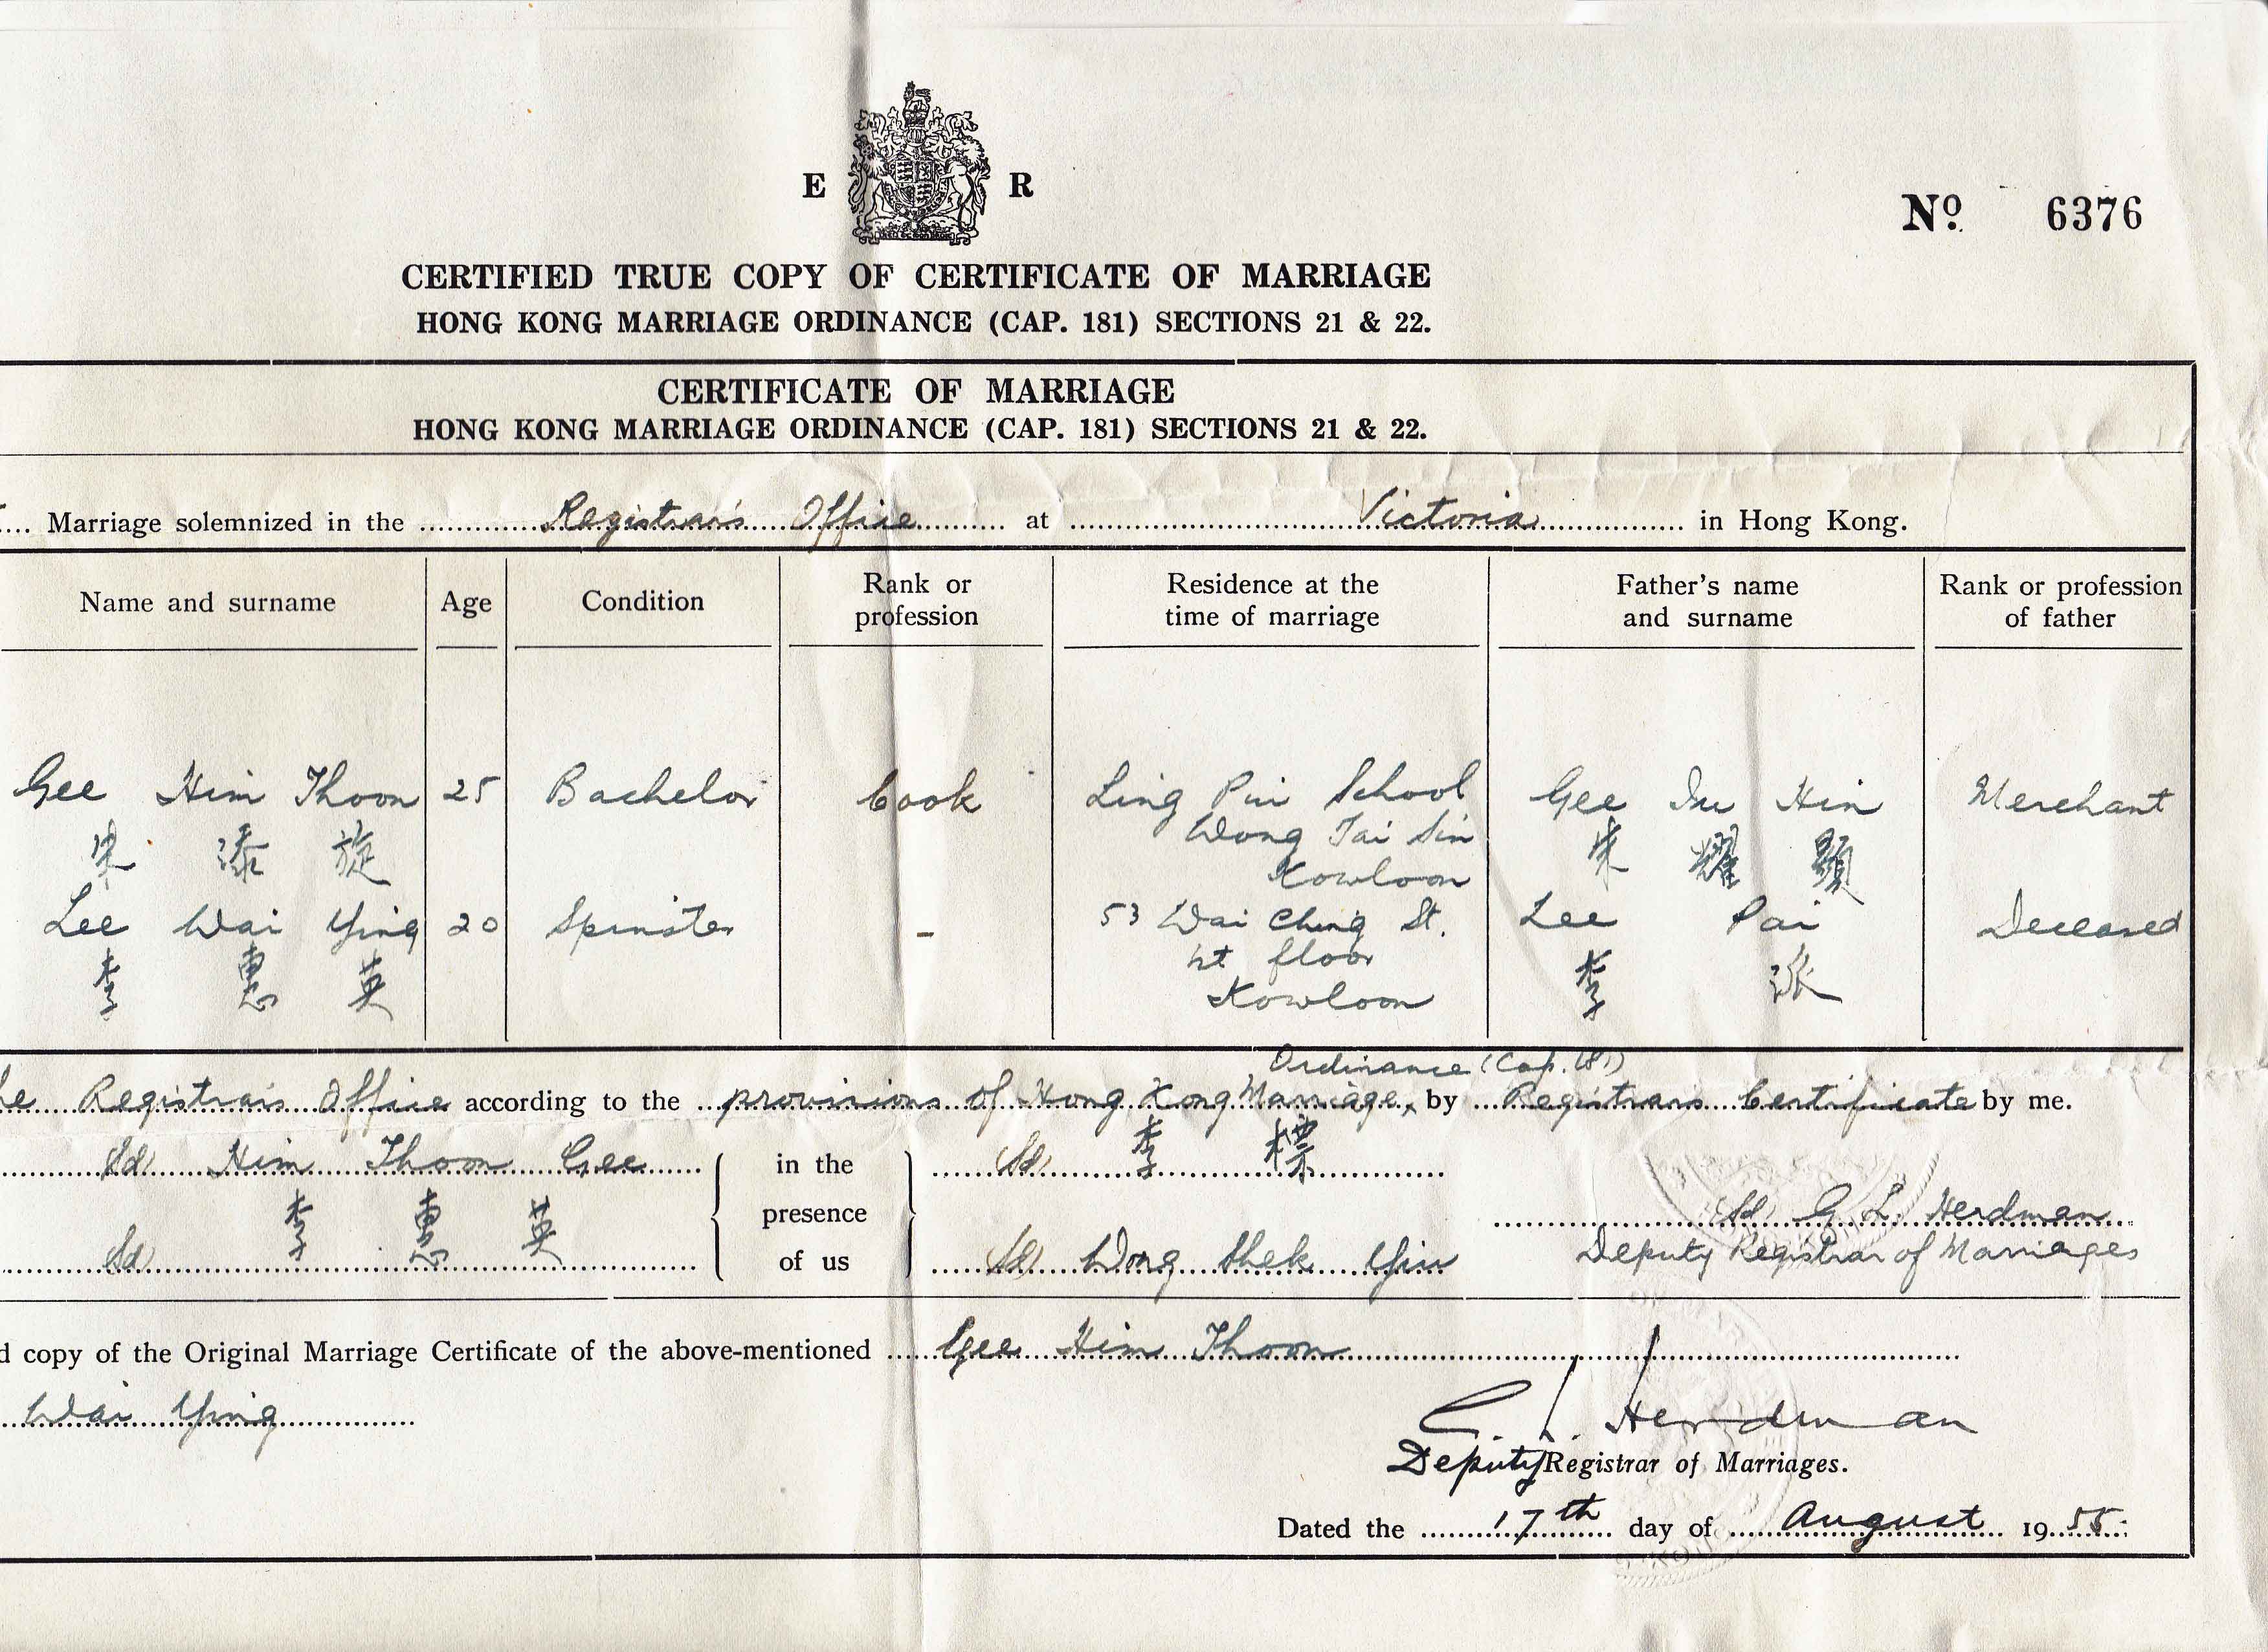 E R
Nº 6376
CERTIFIED TRUE COPY OF CERTIFICATE OF MARRIAGE
HONG KONG MARRIAGE ORDINANCE (CAP. 181) SECTIONS 21 & 22.
CERTIFICATE OF MARRIAGE
HONG KONG MARRIAGE ORDINANCE (CAP. 181) SECTIONS 21 & 22.
Marriage solemnized in the Registrar's Office at Victoria in Hong Kong.
Name and surname Age Condition Rank or profession Residence at the time of marriage Father's name and surname Rank or profession of father
Gee Him Thoon 25 Bachelor Cook Ling Pui School Gee Iu Hin Merchant
Wong Tai Sin
朱 添 旋 朱 耀 顯
Kowloon
Lee Wai Ying 20 Spinster - 53 Wai Ching St. Lee Pai Deceased
floor
李 惠 英 李 派
Kowloon
Ordinance (Cap. 181)
Registrar's Office according to the provisions of Hong Kong Marriage, by Registrar's Certificate by me.
Sd) Him Thoon Gee in the Sd) 李 標
presence Sd) G. L. Herdman
Sd) 李 惠 英 of us Sd) Wong Shek Yiu Deputy Registrar of Marriages
copy of the Original Marriage Certificate of the above-mentioned Gee Him Thoon
Wai Ying
G. L. Herdman
Deputy Registrar of Marriages.
Dated the 17th day of August 1955.